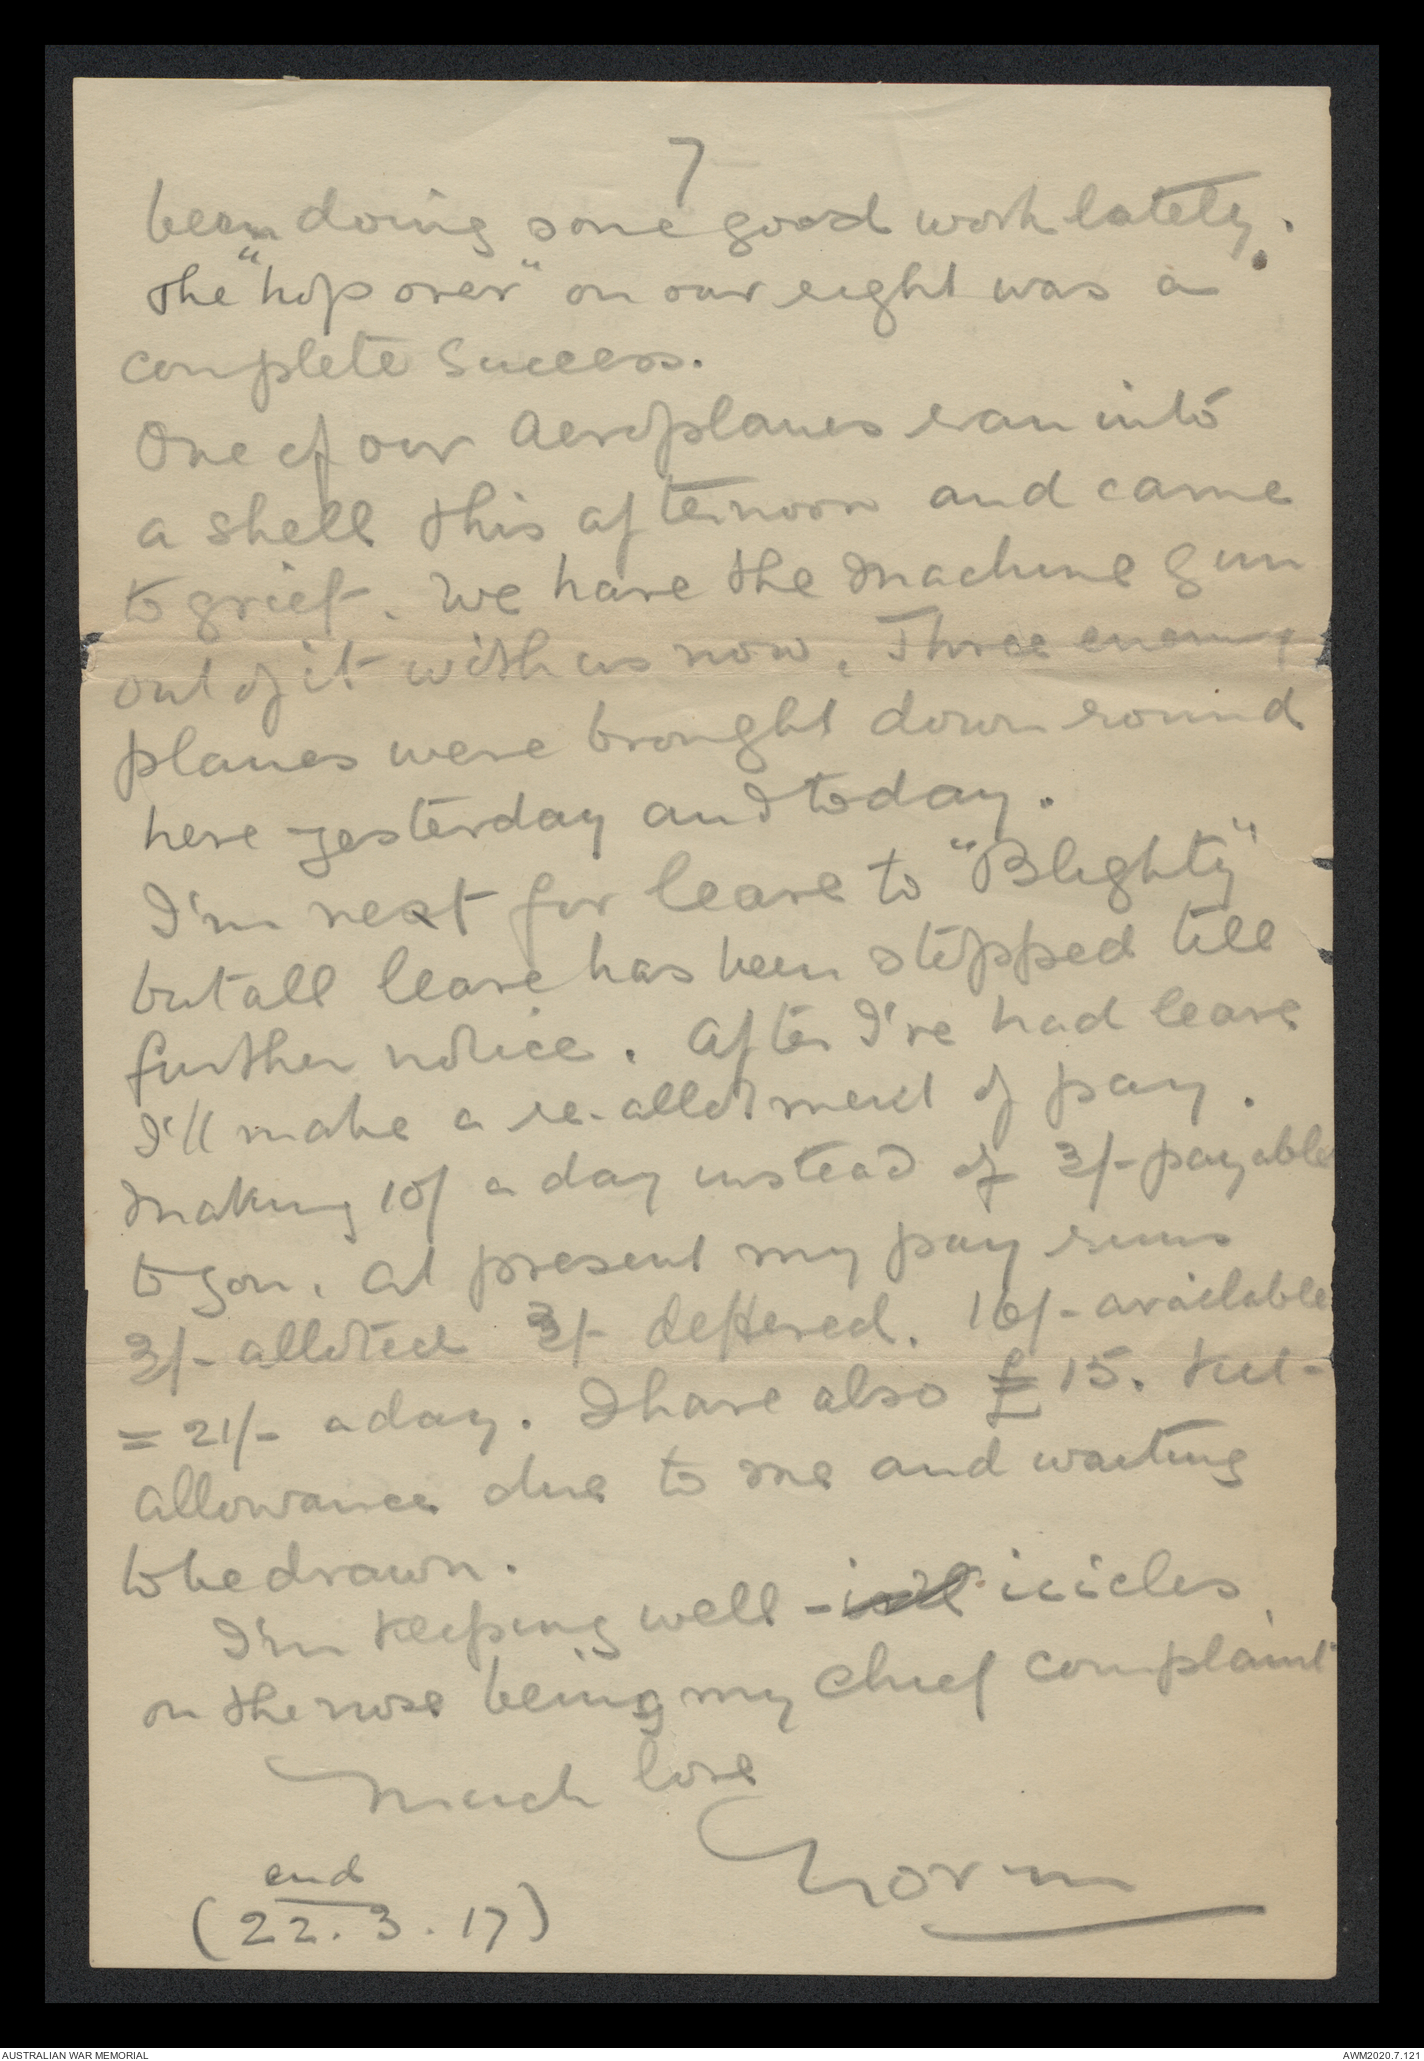 7
been doing some good work lately.
The "hop over" on our right was a
complete success.
One of our Aeroplanes ran into
a shell this afternoon and came
to grief. We have the machine gun
out of it with us now. Three enemy
planes were brought down round
here yesterday and today.
I'm next for leave to "Blighty"
but all leave has been stopped till
further notice. After I've had leave
I'll make a re-allotment of pay.
Making 10/ a day instead of 3/- payable
to you. At present my pay runs
3/- alloted 3/- deffered. 16/- available
= 21/- a day. I have also £15. Kit-
allowance due to me and waiting
to be drawn.
I'm keeping well - icicles
on the nose being my chief complaint
Much love
Norm
end
(22.3.17)
AUSTRALIAN WAR MEMORIAL
AWM2020.7.121